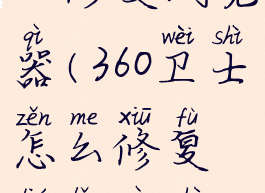 qì wèi shì
器(360卫士
zěn me xiū fù
怎么修复